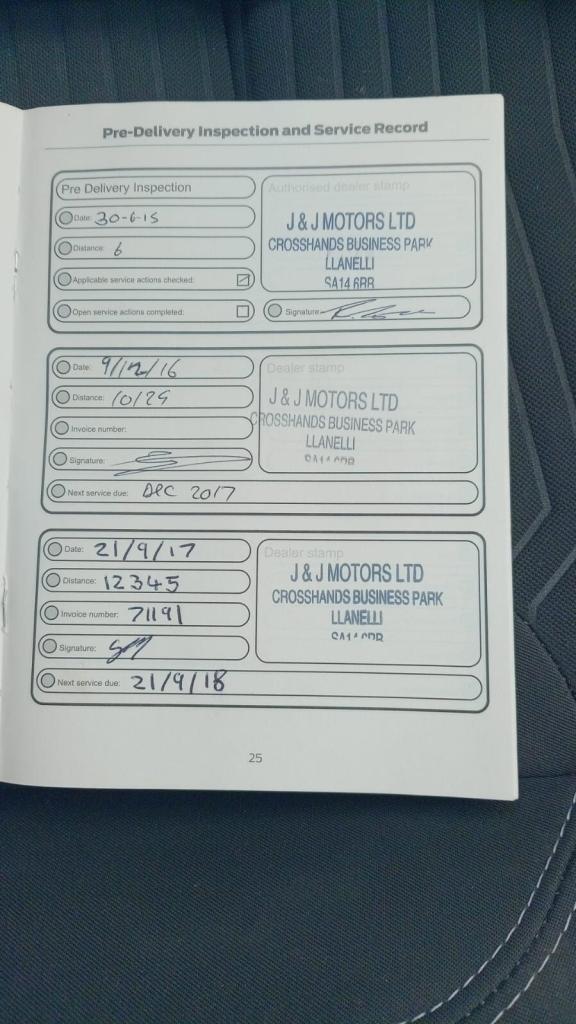 Pre-Delivery Inspection and Service Record
Pre Delivery Inspection
Authorised dealer stamp
Date: 30-6-15
Distance: 6
Applicable service actions checked:
Open service actions completed:
J & J MOTORS LTD
CROSSHANDS BUSINESS PARK
LLANELLI
SA14 6RR
Signature:
Date: 9/12/16
Distance: 10129
Invoice number:
Signature:
Next service due: DEC 2017
Dealer stamp
J & J MOTORS LTD
CROSSHANDS BUSINESS PARK
LLANELLI
Date: 21/9/17
Distance: 12345
Invoice number: 71191
Signature:
Next service due: 21/9/18
Dealer stamp
J & J MOTORS LTD
CROSSHANDS BUSINESS PARK
LLANELLI
25